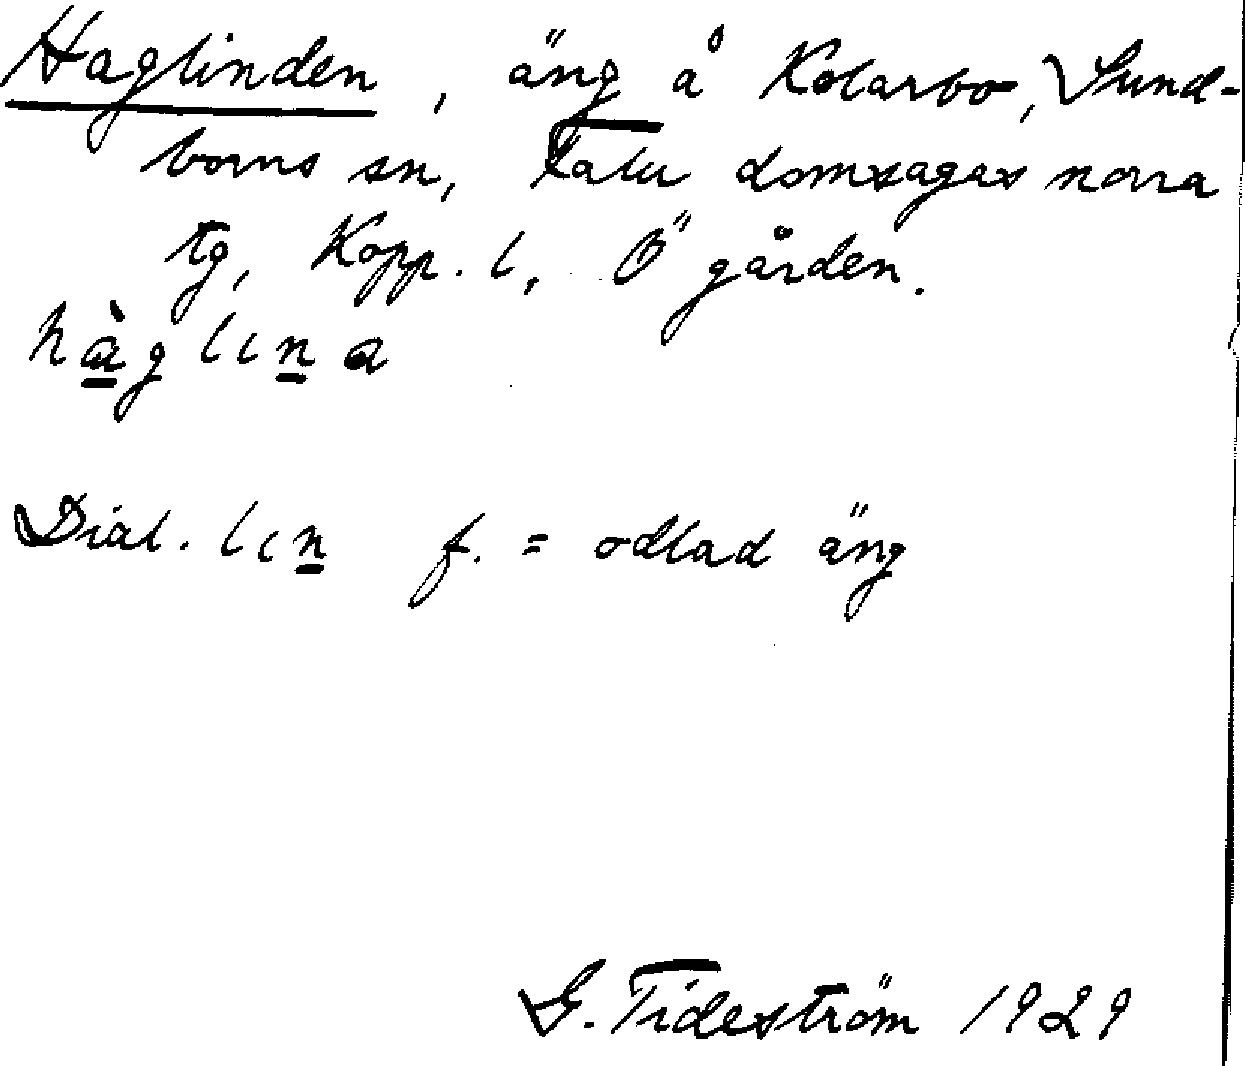 Haglinden, äng å Kolarbo, Sund-
borns sn, Falu domsagas norra
tg, Kopp. l, Ö gården.
hàglına
Dial. lın f. = odlad äng
G. Tideström 1929